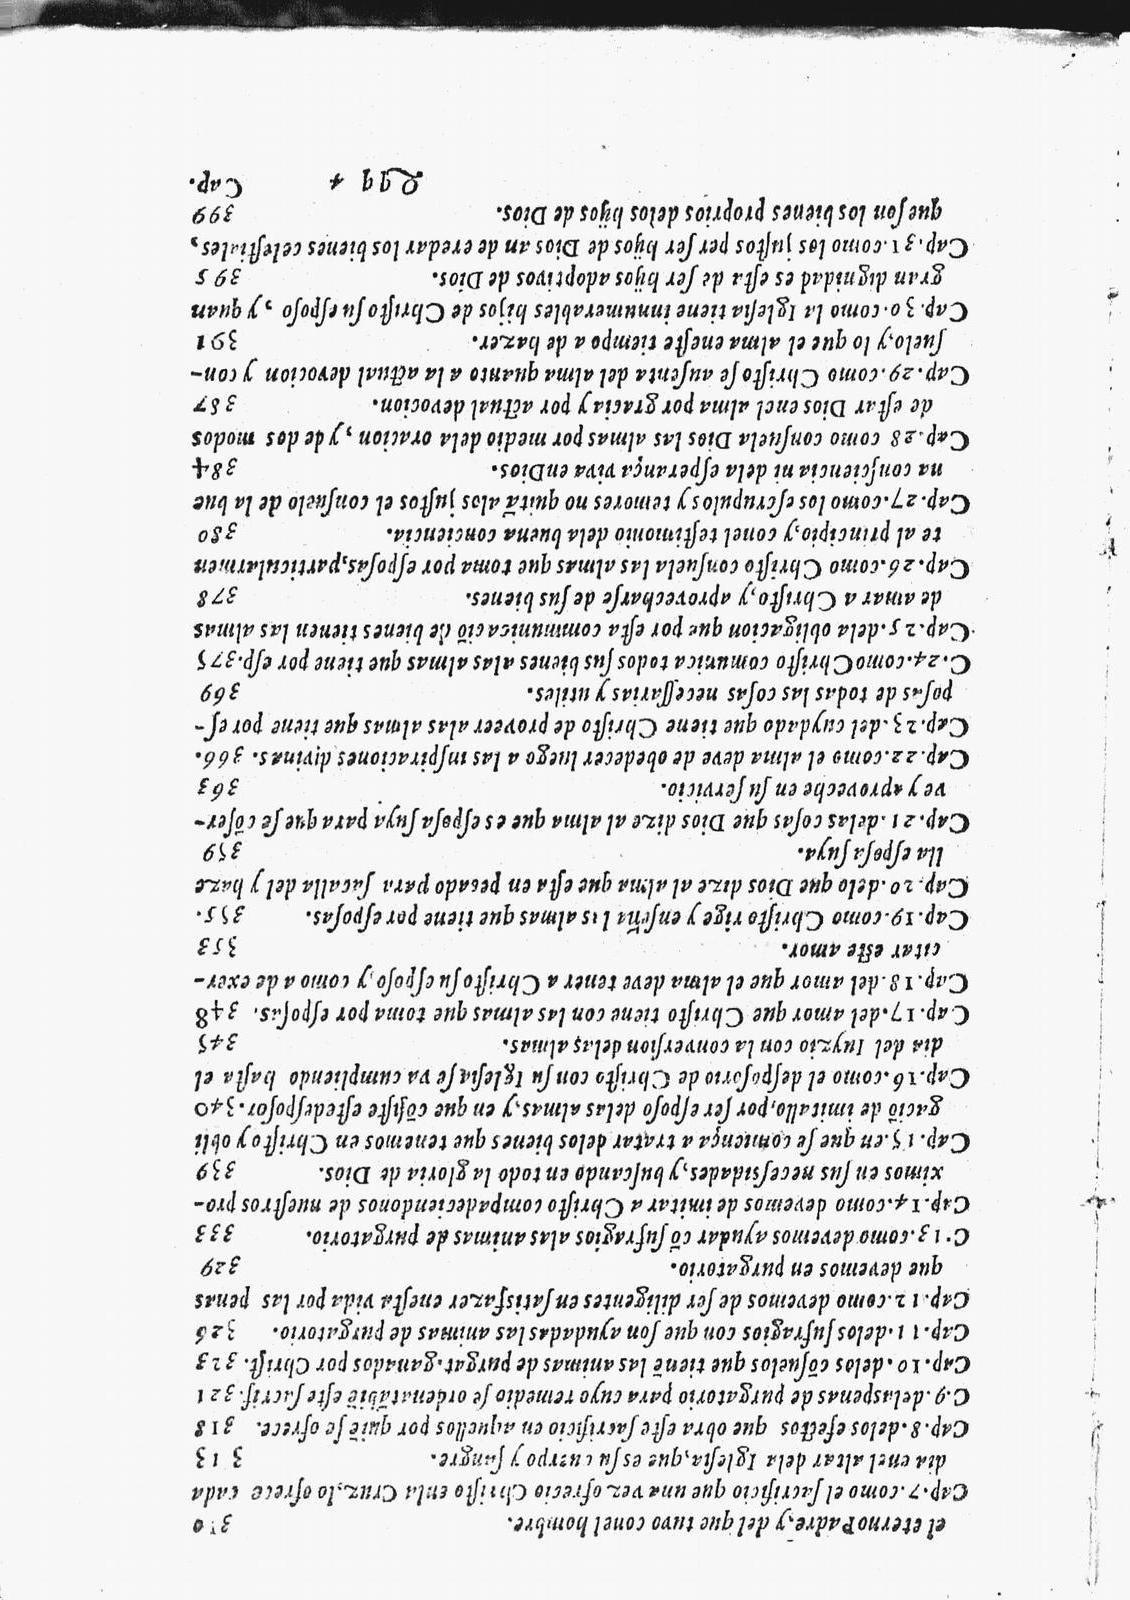 el eterno Padre, y del que tuvo conel hombre. 310
Cap.7.como el sacrificio que una vez ofrecio Christo enla Cruz, lo ofrece cada
dia enel altar dela Iglesia, que es su cuerpo y sangre. 313
Cap.8.delos efectos que obra este sacrificio en aquellos por quiē se ofrece. 318
C.9.delas penas de purgatorio para cuyo remedio se ordena tābiē este sacrif. 321
Cap.10.delos cōsuelos que tienē las animas de purgat. ganados por Christ. 323
Cap.11.delos sufragios con que son ayudadas las animas de purgatorio. 326
Cap.12.como devemos de ser diligentes en satisfazer enesta vida por las penas
que devemos en purgatorio. 329
C.13.como devemos ayudar cō sufragios alas animas de purgatorio. 333
Cap.14.como devemos de imitar a Christo compadeciendonos de nuestros pro-
ximos en sus necessidades, y buscando en todo la gloria de Dios. 339
Cap.15.en que se comiença a tratar delos bienes que tenemos en Christo y obli
gaciō de imitallo, por ser esposo delas almas, y en que cōsiste este desposor. 340
Cap.16.como el desposorio de Christo con su Iglesia se va cumpliendo hasta el
dia del Iuyzio con la conversion delas almas. 345
Cap.17.del amor que Christo tiene con las almas que toma por esposas. 348
Cap.18.del amor que el alma deve tener a Christo su esposo, y como a de exer-
citar este amor. 353
Cap.19.como Christo rige y enseña las almas que tiene por esposas. 355.
Cap.20.delo que Dios dize al alma que esta en pecado para sacalla del y haze
lla esposa suya. 359
Cap.21.delas cosas que Dios dize al alma que es esposa suya para que se cōser-
ve y aproveche en su servicio. 363
Cap.22.como el alma deve de obedecer luego a las inspiraciones divinas. 366.
Cap.23.del cuydado que tiene Christo de proveer alas almas que tiene por es-
posas de todas las cosas necessarias y utiles. 369
C.24.como Christo comunica todos sus bienes alas almas que tiene por esp. 375
Cap.25.dela obligacion que por esta communicaciō de bienes tienen las almas
de amar a Christo, y aprovecharse de sus bienes. 378
Cap.26.como Christo consuela las almas que toma por esposas, particularmen
te al principio, y conel testimonio dela buena conciencia. 380
Cap.27.como los escrupulos y temores no quitā alos justos el consuelo de la bue
na consciencia ni dela esperança viva en Dios. 384
Cap.28 como consuela Dios las almas por medio dela oracion, y de dos modos
de estar Dios enel alma por gracia y por actual devocion. 387
Cap.29.como Christo se ausenta del alma quanto a la actual devocion y con-
suelo, y lo que el alma eneste tiempo a de hazer. 391
Cap.30.como la Iglesia tiene innumerables hijos de Christo su esposo, y quan
gran dignidad es esta de ser hijos adoptivos de Dios. 395
Cap.31.como los justos por ser hijos de Dios an de eredar los bienes celestiales,
que son los bienes proprios delos hijos de Dios. 399
Qqq 4 Cap.